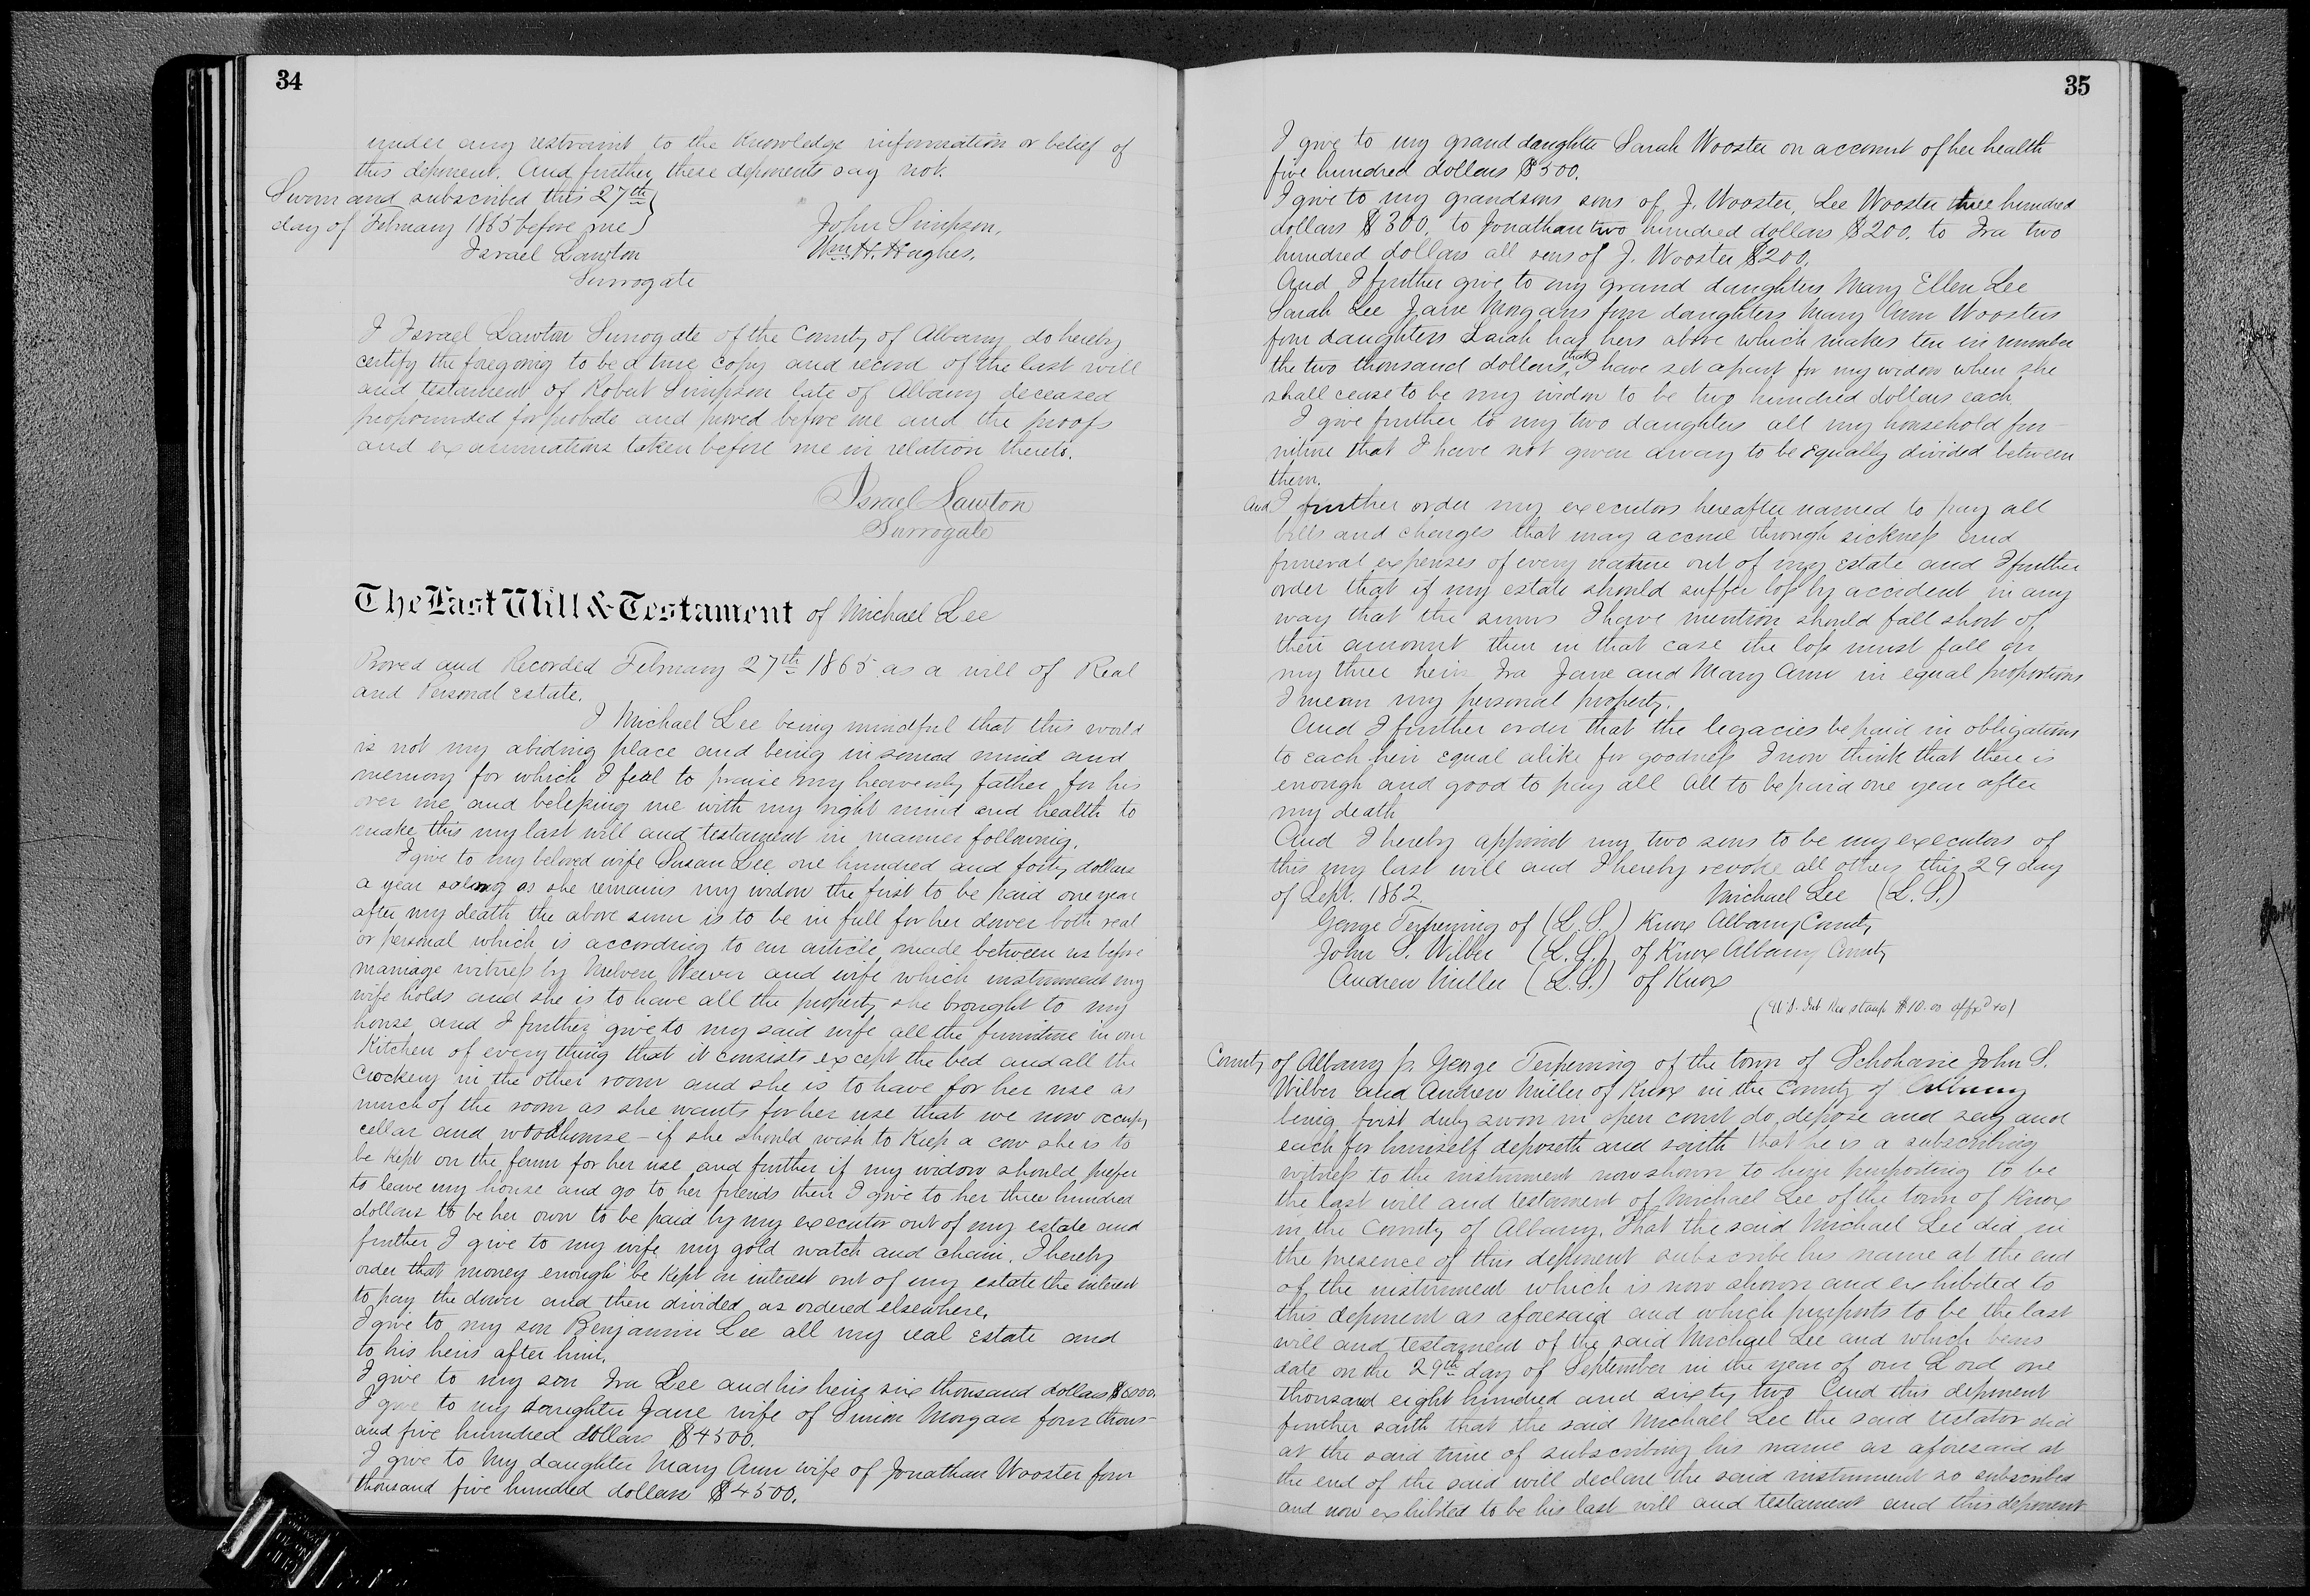 34
under any restraint to the Knowledge information or belief of
this deponent. And further these deponents say not.
Sworn and subscribed this 27th
day of February 1865 before me
John Simpson,
Israel Lawton
Wm. H. Hughes.
Surrogate
I Israel Lawton Surrogate of the County of Albany do hereby
certify the foregoing to be a true copy and record of the last will
and testament of Robert Simpson late of Albany deceased
propounded for probate and proved before me and the proofs
and examinations taken before me in relation thereto.
Israel Lawton
Surrogate
The Last Will & Testament of Michael Lee
Proved and Recorded February 27th 1865 as a will of Real
and Personal Estate.
I Michael Lee being mindful that this world
is not my abiding place and being in sound mind and
memory for which I feel to praise my heavenly father for his
over me and blessing me with my right mind and health to
make this my last will and testament in manner following.
I give to my beloved wife Susan Lee one hundred and forty dollars
a year solong as she remains my widow the first to be paid one year
after my death the above sum is to be in full for her dower both real
or personal which is according to an article made between us before
marriage witness by Weever and wife which instrument my
wife holds and she is to have all the property she brought to my
house and I further give to my said wife all the furniture in our
Kitchen of every thing that it consists except the bed and all the
Crockery in the other room and she is to have for her use as
much of the room as she wants for her use that we now occupy
cellar and woodhouse - if she should wish to Keep a cow she is to
be Kept on the farm for her use and further if my widow should prefer
to leave my house and go to her friends then I give to her three hundred
dollars to be her own to be paid by my executor out of my estate and
further I give to my wife my gold watch and chain. I hereby
order that money enough be Kept on interest out of my estate the interest
to pay the dower and then divided as ordered elsewhere.
I give to my son Benjamin Lee all my real Estate and
to his heirs after him.
I give to my son Ira Lee and his heirs six thousand dollars $6000.
I give to my daughter Jane wife of Simion Morgan four thous-
and five hundred dollars $4500.
I give to my daughter Mary Ann wife of Jonathan Wooster four
thousand five hundred dollars $4500.
35
I give to my grand daughter Sarah Wooster on account of her health
five hundred dollars $500.
I give to my grandsons sons of J. Wooster, Lee Wooster three hundred
dollars $300. to Jonathan two hundred dollars $200. to Ira two
hundred dollars all sons of J. Wooster $200.
And I further give to my grand daughters Mary Ellen Lee
Sarah Lee Jane Morgans four daughters Mary Ann Woosters
four daughters Sarah has hers above which makes ten in number
the two thousand dollars that I have set apart for my widow when she
shall cease to be my widow to be two hundred dollars each
I give further to my two daughters all my household fur-
niture that I have not given away to be Equally divided between
them.
And I further order my executors hereafter named to pay all
bills and charges that may accrue through sickness and
funeral expenses of every nature out of my Estate and I further
order that if my estate should suffer loss by accident in any
way that the sums I have mention should fall short of
their amount then in that case the loss must fall on
my three heirs Ira Jane and Mary Ann in equal proportions
I mean my personal property.
And I further order that the legacies be paid in obligations
to each heir Equal alike for goodness I now think that there is
enough and good to pay all All to be paid one year after
my death
And I hereby appoint my two sons to be my executors of
this my last will and I hereby revoke all others this 29 day
of Sept. 1862. Michael Lee (L. S.)
George Terpening of (L. S.) Knox Albany County
John S. Wilber (L. S.) of Knox Albany County
Andrew Miller (L. S.) of Knox
(U.S. Int Rev stamp $10.00 affxd to)
County of Albany ss. George Terpening of the town of Schoharie John S.
Wilber and Andrew Miller of Knox in the County of Albany
being first duly sworn in open court do depose and say and
each for himself deposeth and saith that he is a subscribing
witness to the instrument now shown to him purporting to be
the last will and testament of Michael Lee of the town of Knox
in the County of Albany. That the said Michael Lee did in
the presence of this deponent subscribe his name at the end
of the instrument which is now shown and exhibited to
this deponent as aforesaid and which purports to be the last
will and testament of the said Michael Lee and which bears
date on the 29th day of September in the year of our Lord one
thousand eight hundred and sixty two And this deponent
further saith that the said Michael Lee the said testator did
at the said time of subscribing his name as aforesaid at
the end of the said will declare the said instrument so subscribed
and now exhibited to be his last will and testament and this deponent